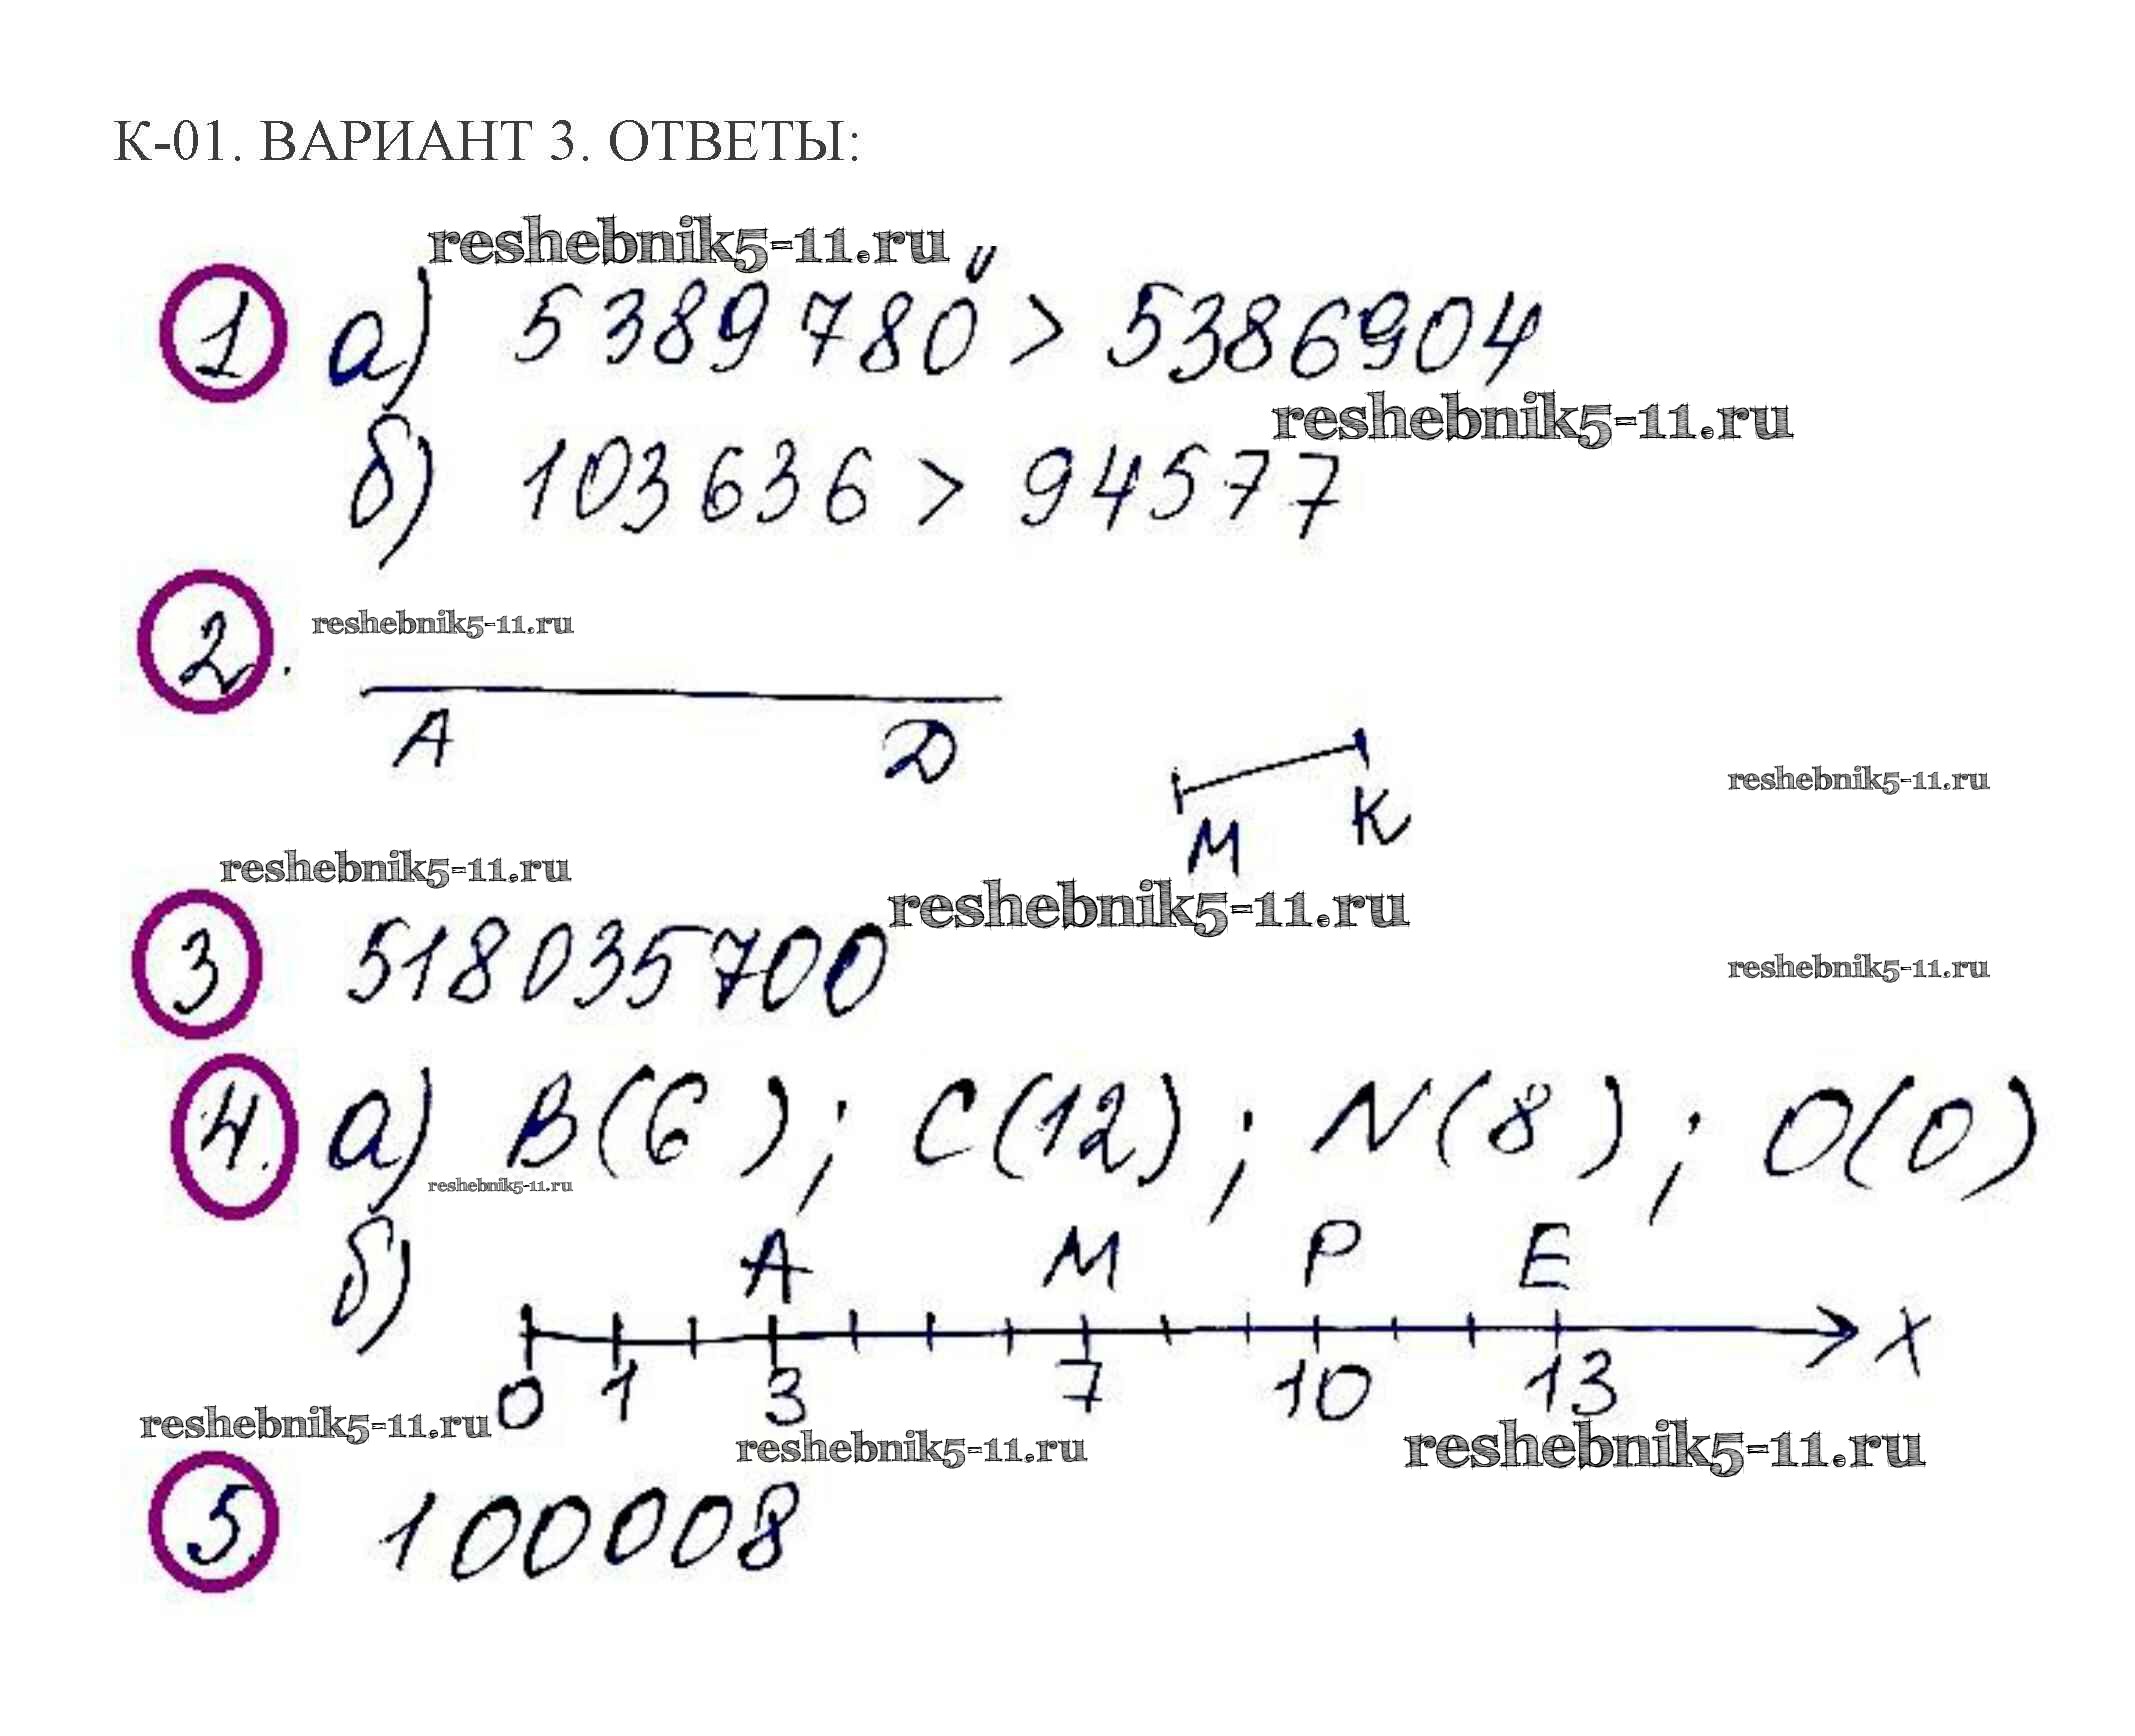 К-01. ВАРИАНТ 3. ОТВЕТЫ:
reshebnik5-11.ru
1 а) 5389780 > 5386904
reshebnik5-11.ru
б) 103636 > 94577
2. reshebnik5-11.ru
A D
M K
reshebnik5-11.ru
reshebnik5-11.ru
reshebnik5-11.ru
3 518035700
reshebnik5-11.ru
4. а) B(6); C(12); N(8); O(0)
reshebnik5-11.ru
б) A M P E
X
0 1 3 7 10 13
reshebnik5-11.ru
reshebnik5-11.ru
reshebnik5-11.ru
5. 100008